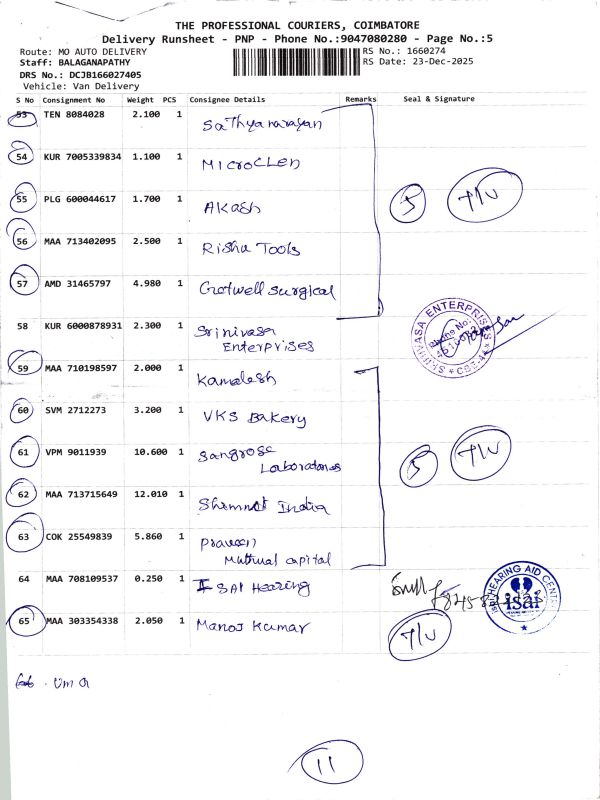 THE PROFESSIONAL COURIERS, COIMBATORE
Delivery Runsheet - PNP - Phone No.:9047080280 - Page No.:5
Route: MO AUTO DELIVERY
RS No.: 1660274
Staff: BALAGANAPATHY
RS Date: 23-Dec-2025
DRS No.: DCJB166027405
Vehicle: Van Delivery
S No Consignment No Weight PCS Consignee Details Remarks Seal & Signature
53 TEN 8084028 2.100 1 Sathyanarayan
54 KUR 7005339834 1.100 1 MicroClen
55 PLG 600044617 1.700 1 Akash
5 T/U
56 MAA 713402095 2.500 1 Risha Tools
57 AMD 31465797 4.980 1 Gretwell Surgical
58 KUR 6000878931 2.300 1 Srinivasa
Enterprises
SRINIVASA ENTERPRISES
Phone No.
59 MAA 710198597 2.000 1 Kamalesh
60 SVM 2712273 3.200 1 VKS Bakery
61 VPM 9011939 10.600 1 Sangrose
Laboratories
5 T/U
62 MAA 713715649 12.010 1 Shimnit India
63 COK 25549839 5.860 1 Praveen
Muttual capital
64 MAA 708109537 0.250 1 ISAI Hearing
HEARING AID CENT
isai
65 MAA 303354338 2.050 1 Manoj Kumar
T/U
Uma
11